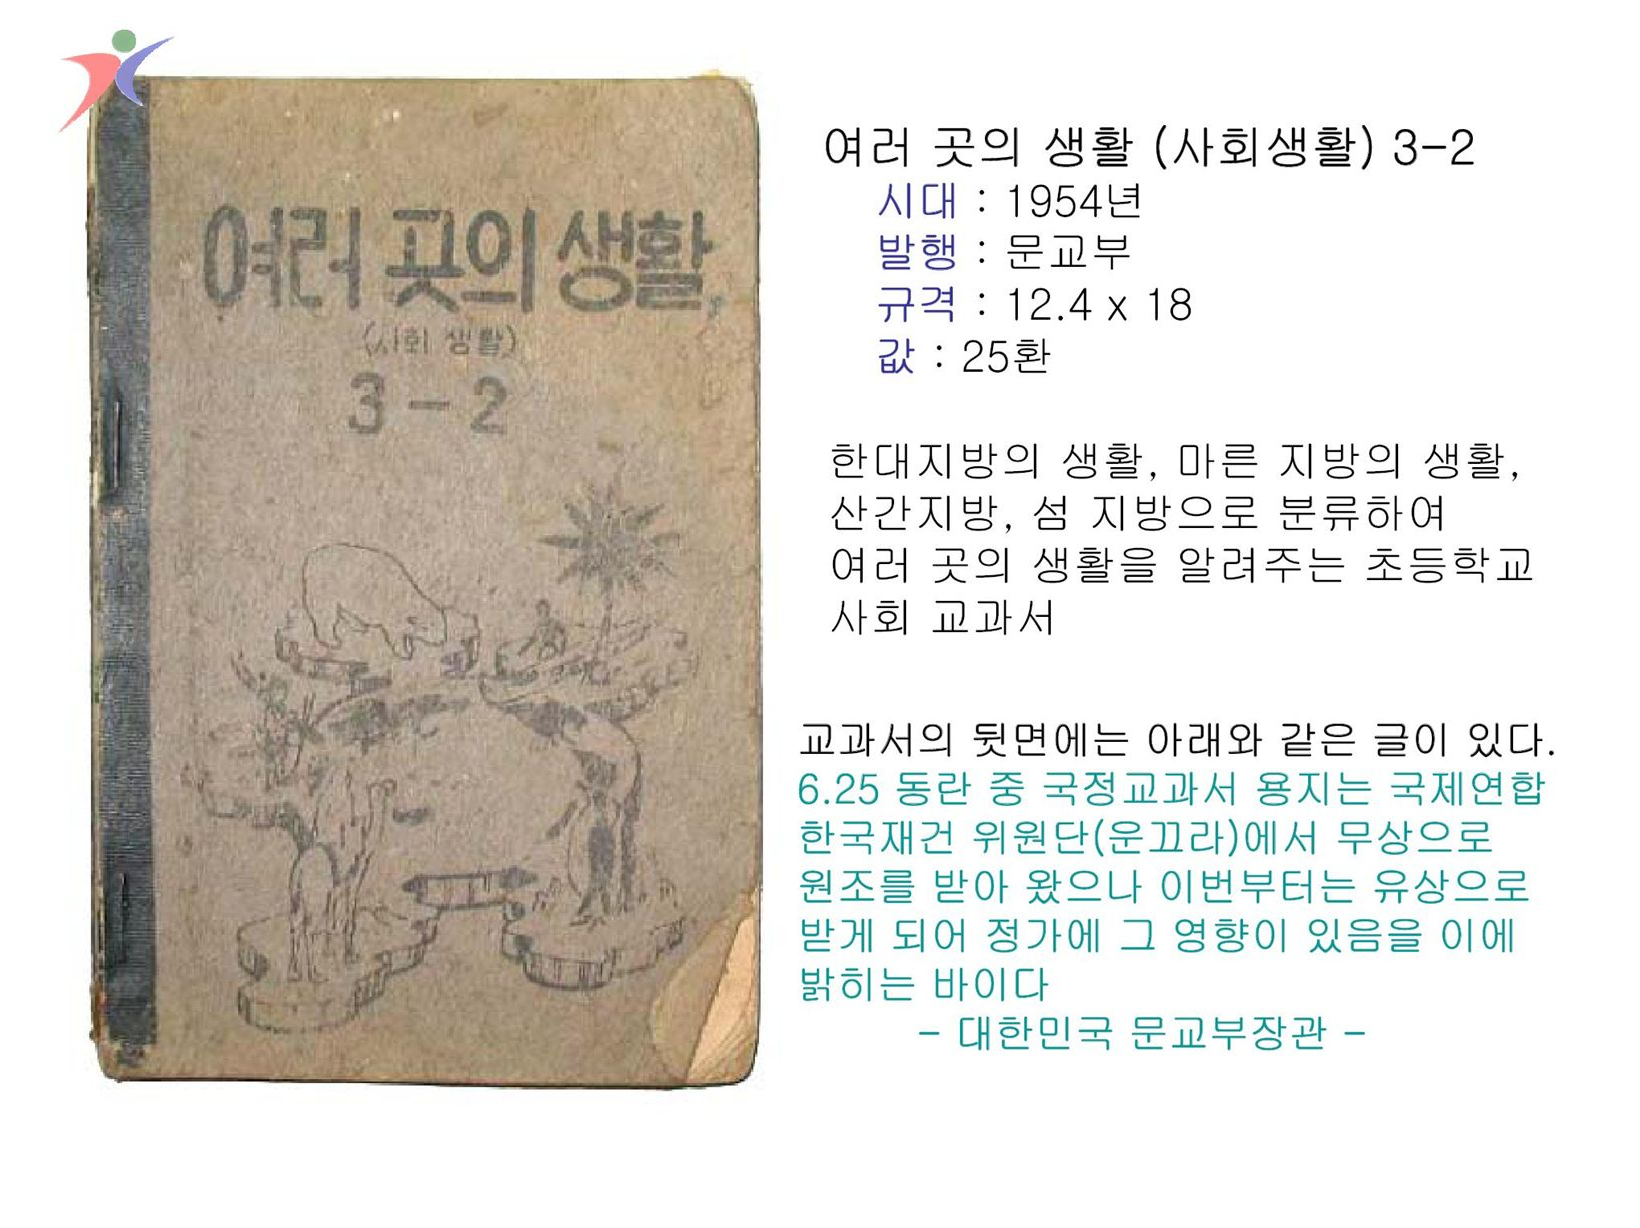 여러 곳의 생활
(사회 생활)
3-2
여러 곳의 생활 (사회생활) 3-2
시대 : 1954년
발행 : 문교부
규격 : 12.4 x 18
값 : 25환
한대지방의 생활, 마른 지방의 생활,
산간지방, 섬 지방으로 분류하여
여러 곳의 생활을 알려주는 초등학교
사회 교과서
교과서의 뒷면에는 아래와 같은 글이 있다.
6.25 동란 중 국정교과서 용지는 국제연합
한국재건 위원단(운끄라)에서 무상으로
원조를 받아 왔으나 이번부터는 유상으로
받게 되어 정가에 그 영향이 있음을 이에
밝히는 바이다
- 대한민국 문교부장관 -